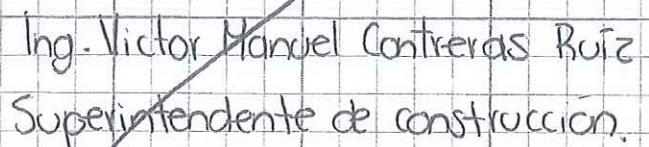 Ing. Victor Manuel Contreras Ruiz
Superintendente de construcción.